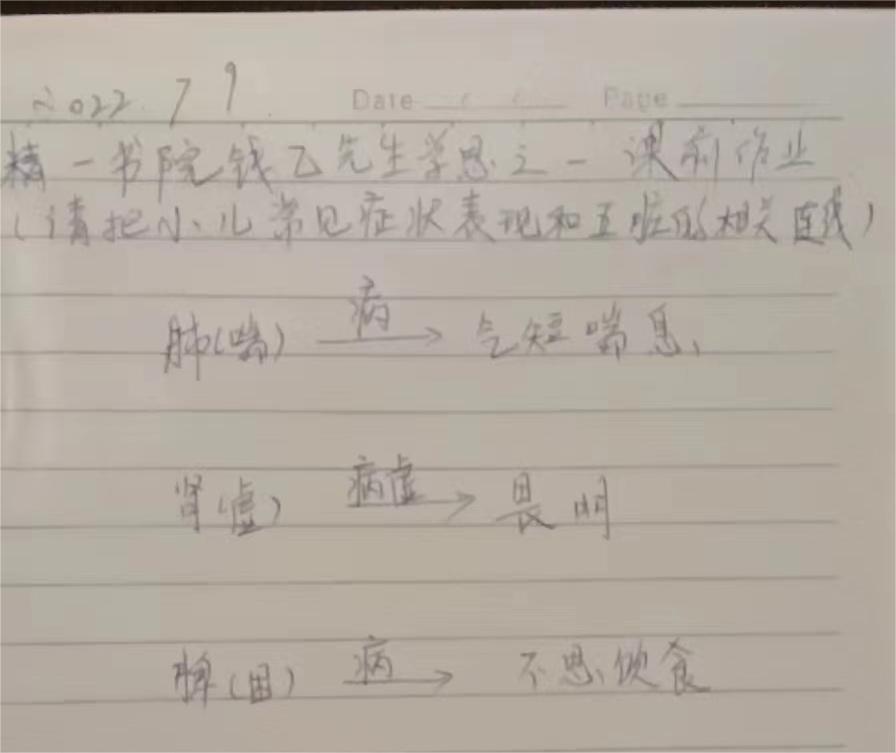 2022.7.9. Date Page
精一书院钱乙先生学思之一课前作业
(请把小儿常见症状表现和五脏的相关连线)
肺(喘) 病 → 气短喘息、
肾(虚) 病虚 → 畏明
脾(困) 病 → 不思饮食